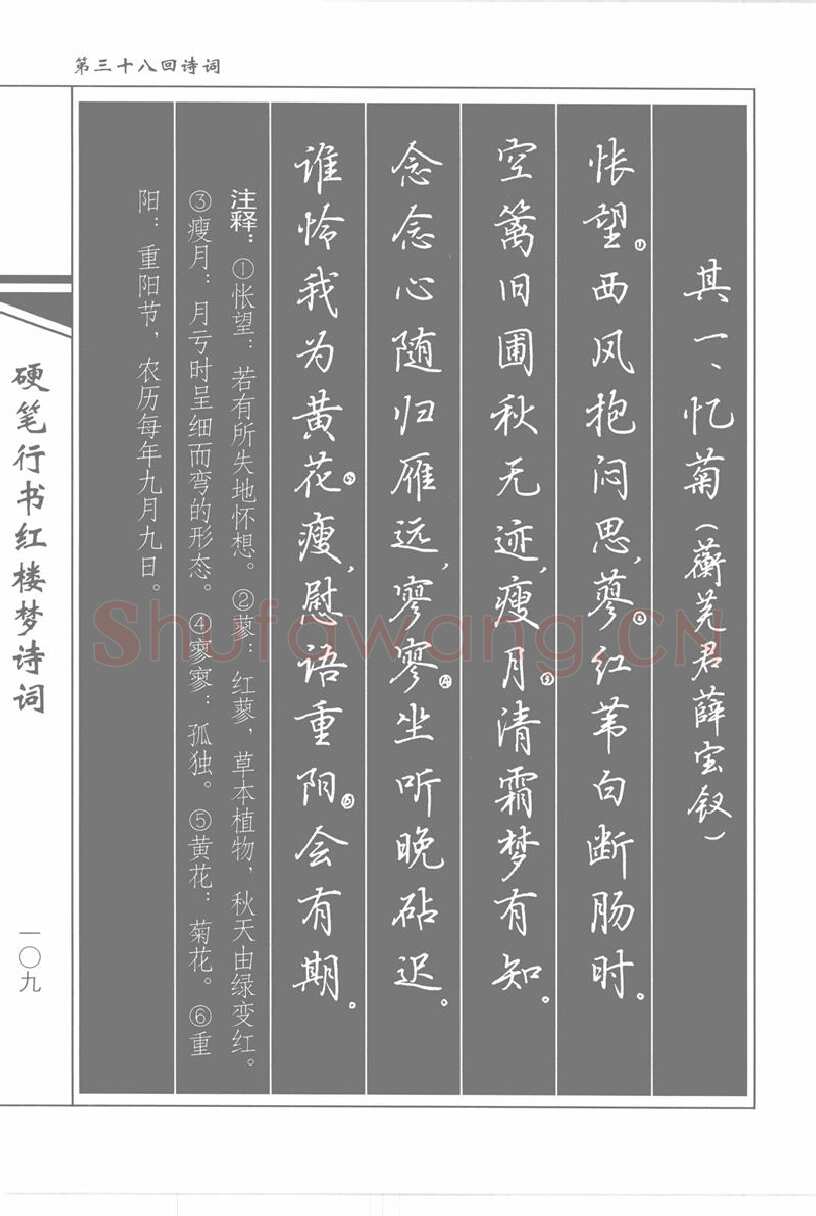 第三十八回诗词
其一、忆菊(蘅芜君薛宝钗)
怅望①西风抱闷思,蓼②红苇白断肠时。
空篱旧圃秋无迹,瘦月③清霜梦有知。
念念心随归雁远,寥寥④坐听晚砧迟。
谁怜我为黄花⑤瘦,慰语重阳⑥会有期。
注释:①怅望:若有所失地怀想。②蓼:红蓼,草本植物,秋天由绿变红。
③瘦月:月亏时呈细而弯的形态。④寥寥:孤独。⑤黄花:菊花。⑥重
阳:重阳节,农历每年九月九日。
硬笔行书红楼梦诗词
一〇九
Shufawang.CN